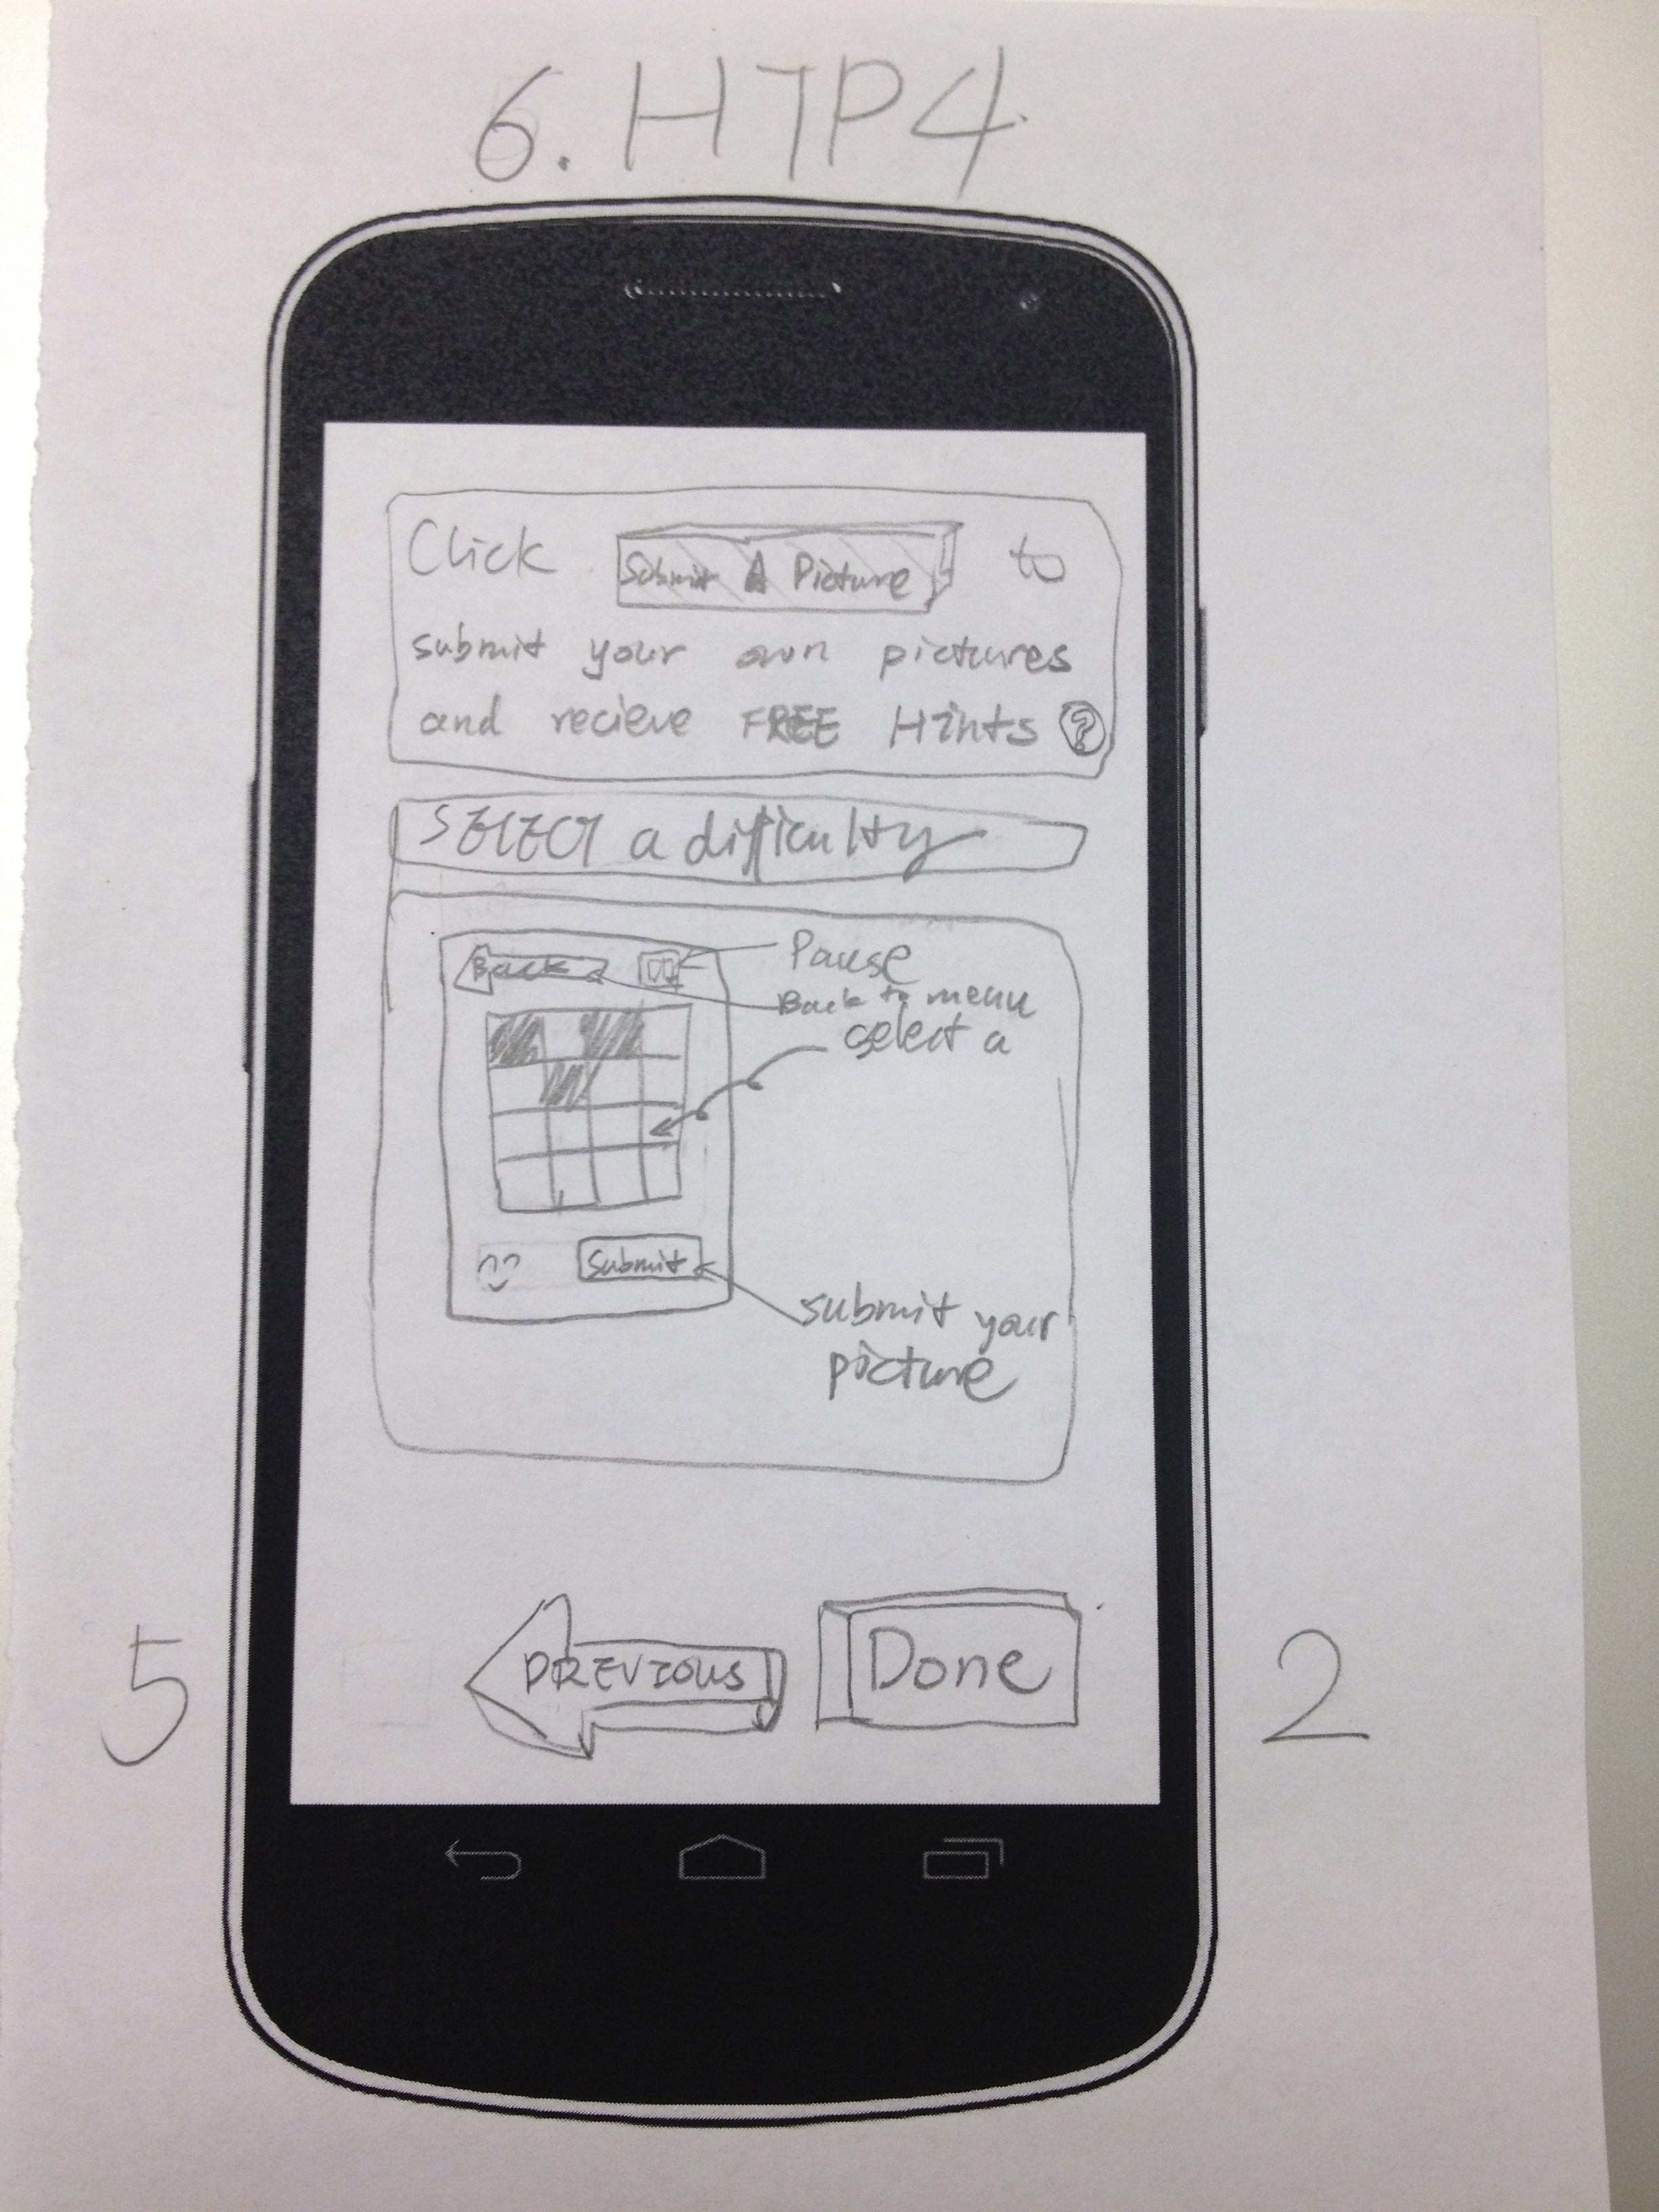 6. HTP4
Click Submit A Picture to
submit your own pictures
and recieve FREE Hints ?
SELECT a difficulty
Back
Pause
Back to menu
select a
Submit
submit your
picture
5 PREVIOUS Done 2